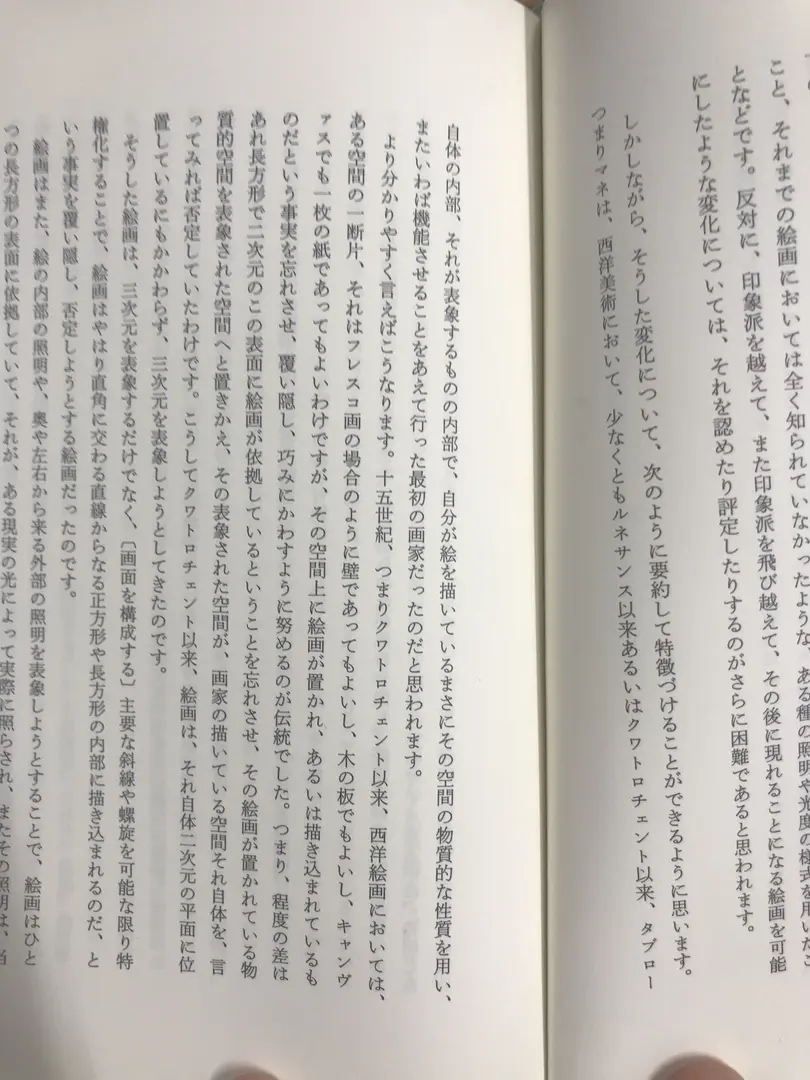 こと、それまでの絵画においては全く知られていなかったような、ある種の照明や光度の様式を用いたこ
となどです。反対に、印象派を越えて、また印象派を飛び越えて、その後に現れることになる絵画を可能
にしたような変化については、それを認めたり評定したりするのがさらに困難であると思われます。
しかしながら、そうした変化について、次のように要約して特徴づけることができるように思います。
つまりマネは、西洋美術において、少なくともルネサンス以来あるいはクワトロチェント以来、タブロー
自体の内部、それが表象するものの内部で、自分が絵を描いているまさにその空間の物質的な性質を用い、
またいわば機能させることをあえて行った最初の画家だったのだと思われます。
より分かりやすく言えばこうなります。十五世紀、つまりクワトロチェント以来、西洋絵画においては、
ある空間の一断片、それはフレスコ画の場合のように壁であってもよいし、木の板でもよいし、キャンヴ
ァスでも一枚の紙であってもよいわけですが、その空間上に絵画が置かれ、あるいは描き込まれているも
のだという事実を忘れさせ、覆い隠し、巧みにかわすように努めるのが伝統でした。つまり、程度の差は
あれ長方形で二次元のこの表面に絵画が依拠しているということを忘れさせ、その絵画が置かれている物
質的空間を表象された空間へと置きかえ、その表象された空間が、画家の描いている空間それ自体を、言
ってみれば否定していたわけです。こうしてクワトロチェント以来、絵画は、それ自体二次元の平面に位
置しているにもかかわらず、三次元を表象しようとしてきたのです。
そうした絵画は、三次元を表象するだけでなく、〔画面を構成する〕主要な斜線や螺旋を可能な限り特
権化することで、絵画はやはり直角に交わる直線からなる正方形や長方形の内部に描き込まれるのだ、と
いう事実を覆い隠し、否定しようとする絵画だったのです。
絵画はまた、絵の内部の照明や、奥や左右から来る外部の照明を表象しようとすることで、絵画はひと
つの長方形の表面に依拠していて、それが、ある現実の光によって実際に照らされ、またその照明は、当